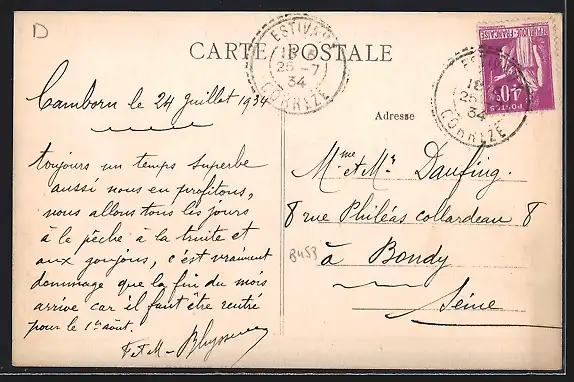 D
CARTE POSTALE
ESTIVAUX
25 -7
34
CORRÈZE
RÉPUBLIQUE FRANÇAISE
POSTES
40c
25
34
CORRÈZE
Camborn le 24 Juillet 1934
toujours un temps superbe
aussi nous en profitons,
nous allons tous les jours
à le pêche à la truite et
aux goujons, c'est vraiment
dommage que la fin du mois
arrive car il faut être rentré
pour le 1er août.
F et M -
Adresse
Mme et Mr Daufing.
8 rue Philéas Collardeau 8
B453
à Bondy
Seine